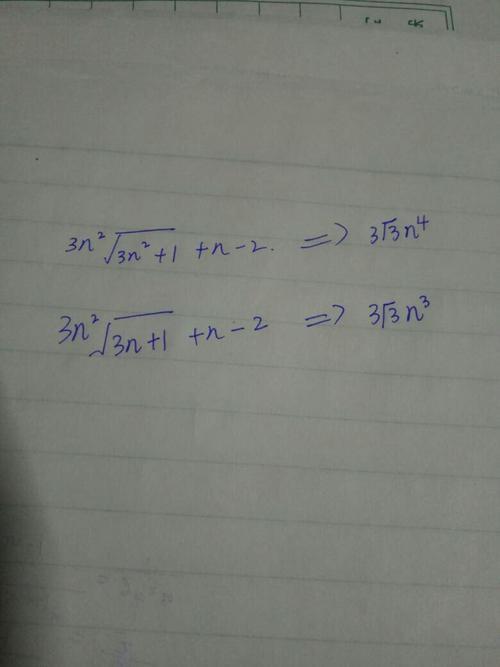 3n²√(3n²+1) + n - 2. => 3√3n⁴
3n²√(3n+1) + n - 2 => 3√3n³